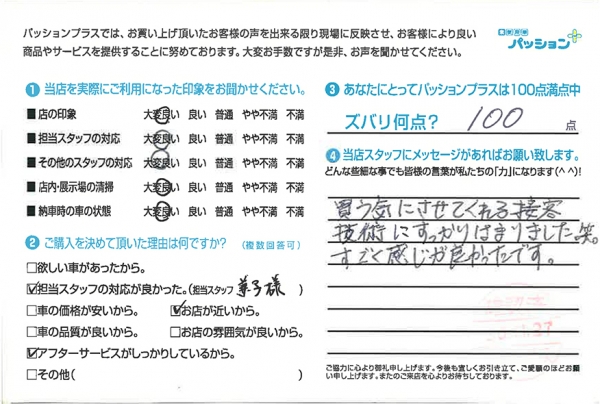 パッションプラスでは、お買い上げ頂いたお客様の声を出来る限り現場に反映させ、お客様により良い
商品やサービスを提供することに努めております。大変お手数ですが是非、お声を聞かせてください。
パッション
❶ 当店を実際にご利用になった印象をお聞かせください。
■ 店の印象 大変良い 良い 普通 やや不満 不満
■ 担当スタッフの対応 大変良い 良い 普通 やや不満 不満
■ その他のスタッフの対応 大変良い 良い 普通 やや不満 不満
■ 店内・展示場の清掃 大変良い 良い 普通 やや不満 不満
■ 納車時の車の状態 大変良い 良い 普通 やや不満 不満
❷ ご購入を決めて頂いた理由は何ですか? (複数回答可)
□欲しい車があったから。
☑担当スタッフの対応が良かった。(担当スタッフ 様 )
□車の価格が安いから。 ☑お店が近いから。
□車の品質が良いから。 □お店の雰囲気が良いから。
☑アフターサービスがしっかりしているから。
□その他( )
❸ あなたにとってパッションプラスは100点満点中
ズバリ何点? 100 点
❹ 当店スタッフにメッセージがあればお願い致します。
どんな些細な事でも皆様の言葉が私たちの「力」になります(^^)!
買う気にさせてくれる接客
技術にすっかりはまりました笑。
すごく感じが良かったです。
ご協力に心より御礼申し上げます。今後も宜しくお引き立て、ご愛顧のほどお願
い申し上げます。またのご来店を心よりお待ちしております。